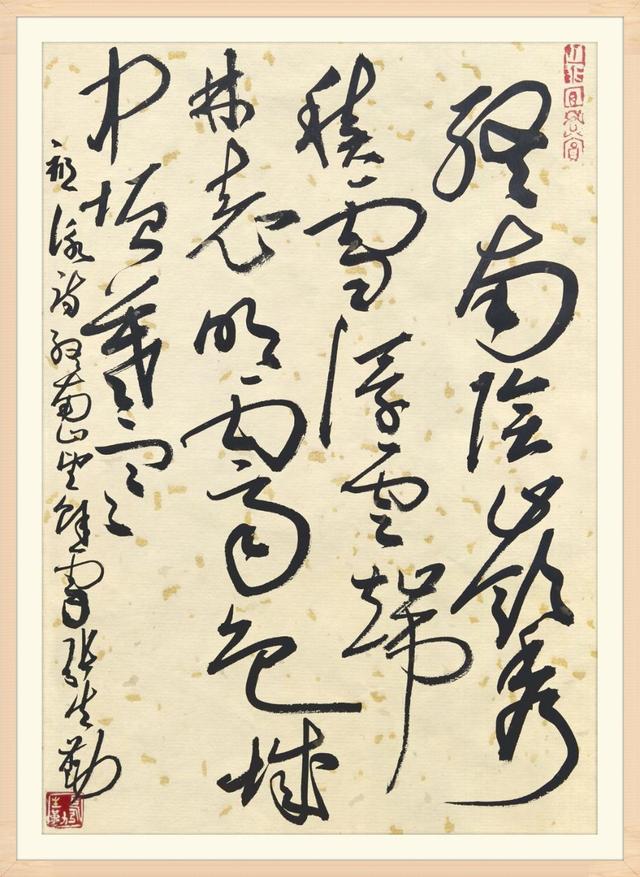 终南阴岭秀
积雪浮云端
林表明霁色城
中增暮寒
祖咏诗终南山望余雪张生勤